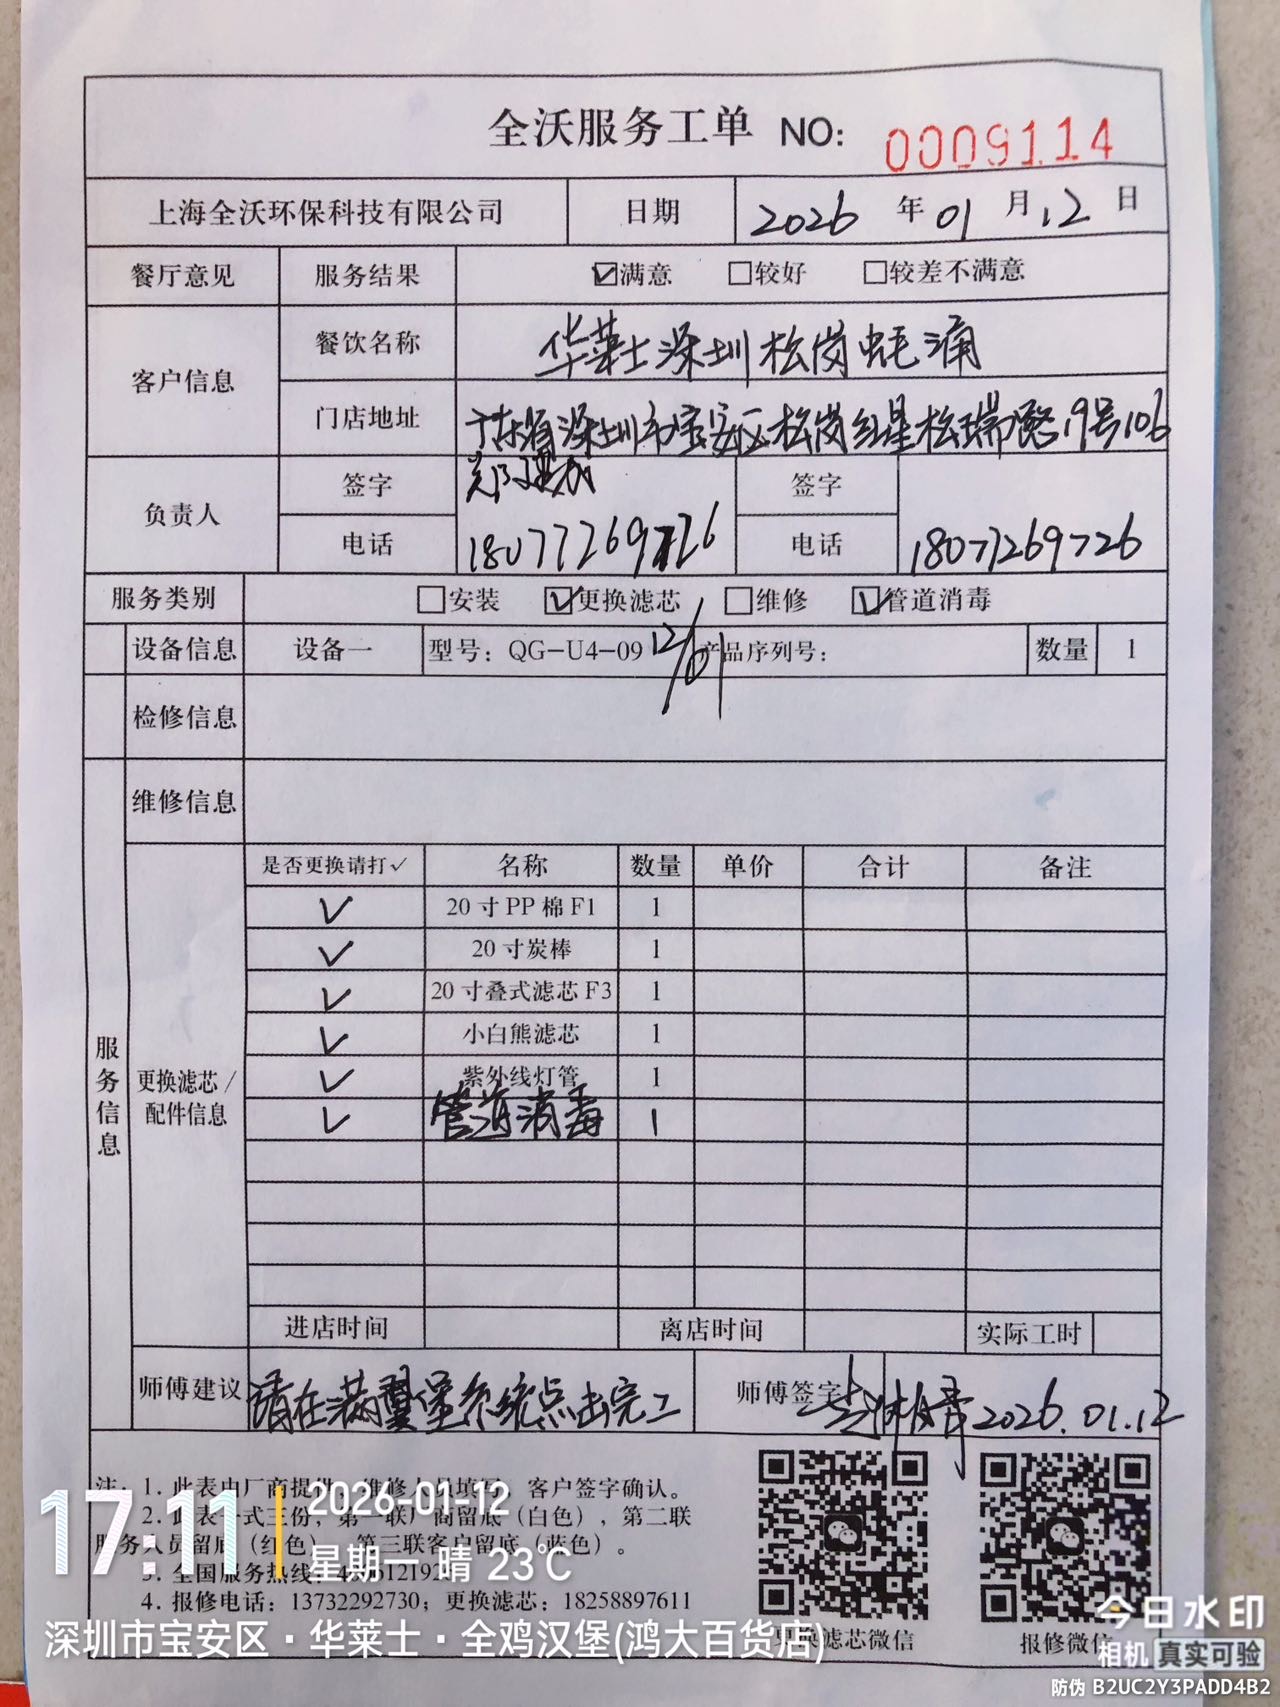 全沃服务工单 NO: 0009114
上海全沃环保科技有限公司 日期 2026 年 01 月 12 日
餐厅意见 服务结果 ☑满意 □较好 □较差不满意
客户信息 餐饮名称 华莱士深圳松岗蚝涌
门店地址 广东省深圳市宝安区松岗红星松瑞路19号106
负责人 签字 签字
电话 18077269726 电话 18077269726
服务类别 □安装 ☑更换滤芯 □维修 ☑管道消毒
设备信息 设备一 型号: QG-U4-09 12/01 产品序列号: 数量 1
检修信息
维修信息
服务信息
更换滤芯/配件信息
是否更换请打✓ 名称 数量 单价 合计 备注
✓ 20寸PP棉F1 1
✓ 20寸炭棒 1
✓ 20寸叠式滤芯F3 1
✓ 小白熊滤芯 1
✓ 紫外线灯管 1
✓ 管道消毒 1
进店时间 离店时间 实际工时
师傅建议 请在满翼堡系统点击完工 师傅签字 2026.01.12
注: 1. 此表由厂商提供,维修人员填写,客户签字确认。
2. 此表一式三份,第一联厂商留底(白色),第二联
服务人员留底(红色),第三联客户留底(蓝色)。
3. 全国服务热线:
4. 报修电话: 13732292730; 更换滤芯: 18258897611
更换滤芯微信 报修微信
17:11
2026-01-12
星期一 晴 23℃
深圳市宝安区·华莱士·全鸡汉堡(鸿大百货店)
今日水印
相机 真实可验
防伪 B2UC2Y3PADD4B2